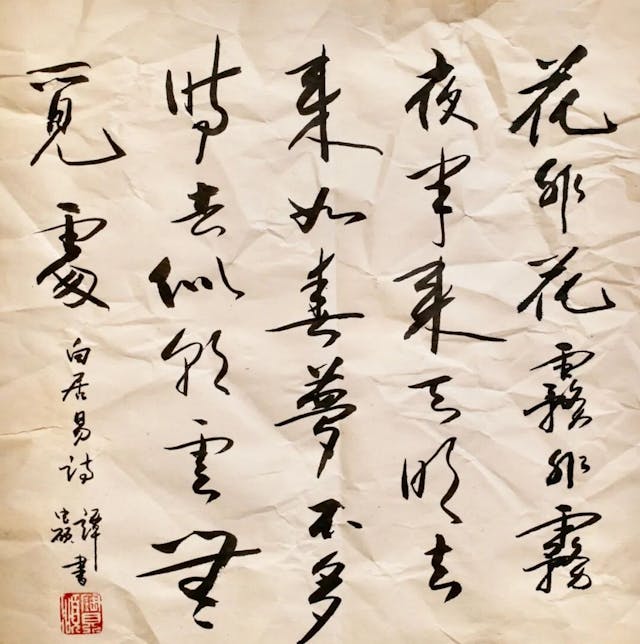 花非花霧非霧
夜半來天明去
來如春夢不多
時去似朝雲無
覓處
白居易詩
譚
書